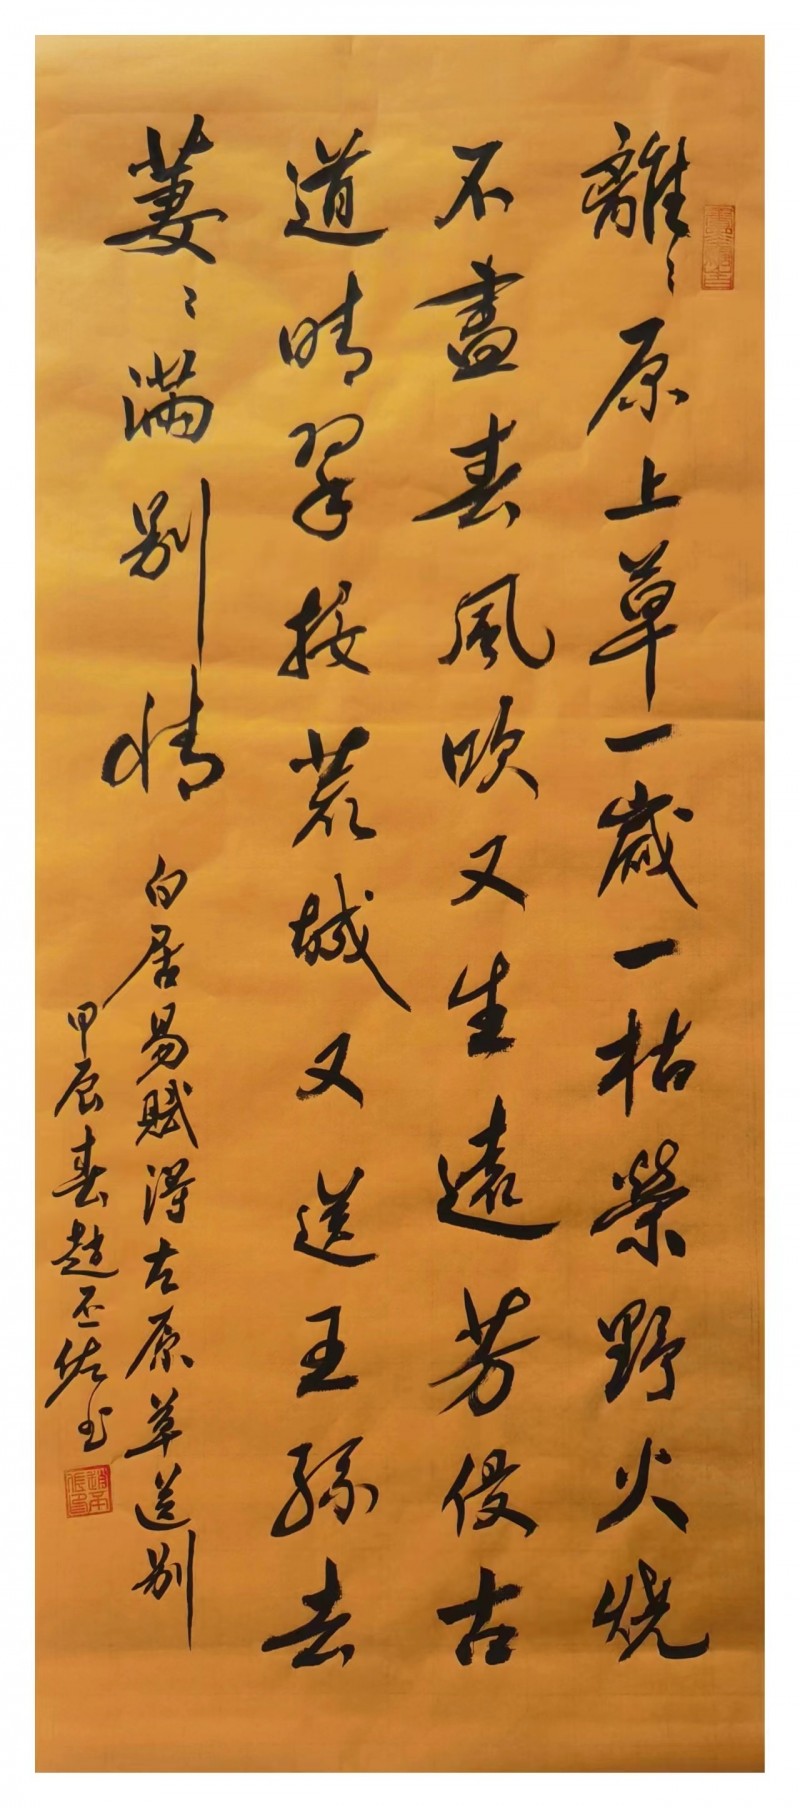 離〻原上草一歲一枯榮野火燒
不盡春風吹又生遠芳侵古
道晴翠接荒城又送王孫去
萋〻滿別情
白居易賦得古原草送別
甲辰春趙丕佐书